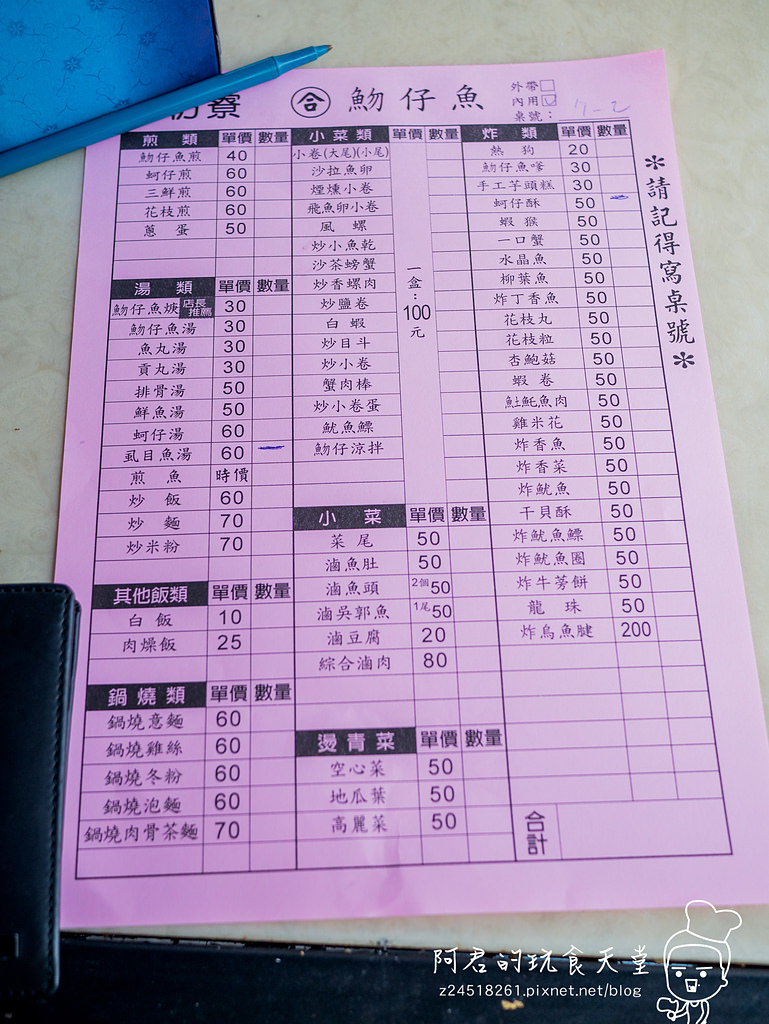 寮 合 魩仔魚
外帶
內用
桌號：7-2
＊請記得寫桌號＊
煎類 單價 數量
魩仔魚煎 40
蚵仔煎 60
三鮮煎 60
花枝煎 60
蔥蛋 50
湯類 單價 數量
魩仔魚焿 店長推薦 30
魩仔魚湯 30
魚丸湯 30
貢丸湯 30
排骨湯 50
鮮魚湯 50
蚵仔湯 60
虱目魚湯 60
煎魚 時價
炒飯 60
炒麵 70
炒米粉 70
其他飯類 單價 數量
白飯 10
肉燥飯 25
鍋燒類 單價 數量
鍋燒意麵 60
鍋燒雞絲 60
鍋燒冬粉 60
鍋燒泡麵 60
鍋燒肉骨茶麵 70
小菜類 單價 數量
小卷(大尾)(小尾)
沙拉魚卵
煙燻小卷
飛魚卵小卷
風螺
炒小魚乾
沙茶螃蟹
炒香螺肉
炒鹽卷
白蝦
炒目斗
炒小卷
蟹肉棒
炒小卷蛋
魷魚鰾
魩仔涼拌
一盒：100元
小菜 單價 數量
菜尾 50
滷魚肚 50
滷魚頭 2個50
滷吳郭魚 1尾50
滷豆腐 20
綜合滷肉 80
燙青菜 單價 數量
空心菜 50
地瓜葉 50
高麗菜 50
炸類 單價 數量
熱狗 20
魩仔魚嗲 30
手工芋頭糕 30
蚵仔酥 50
蝦猴 50
一口蟹 50
水晶魚 50
柳葉魚 50
炸丁香魚 50
花枝丸 50
花枝粒 50
杏鮑菇 50
蝦卷 50
魠魚肉 50
雞米花 50
炸香魚 50
炸香菜 50
炸魷魚 50
干貝酥 50
炸魷魚鰾 50
炸魷魚圈 50
炸牛蒡餅 50
龍珠 50
炸烏魚腱 200
合計
阿君的玩食天堂
z24518261.pixnet.net/blog